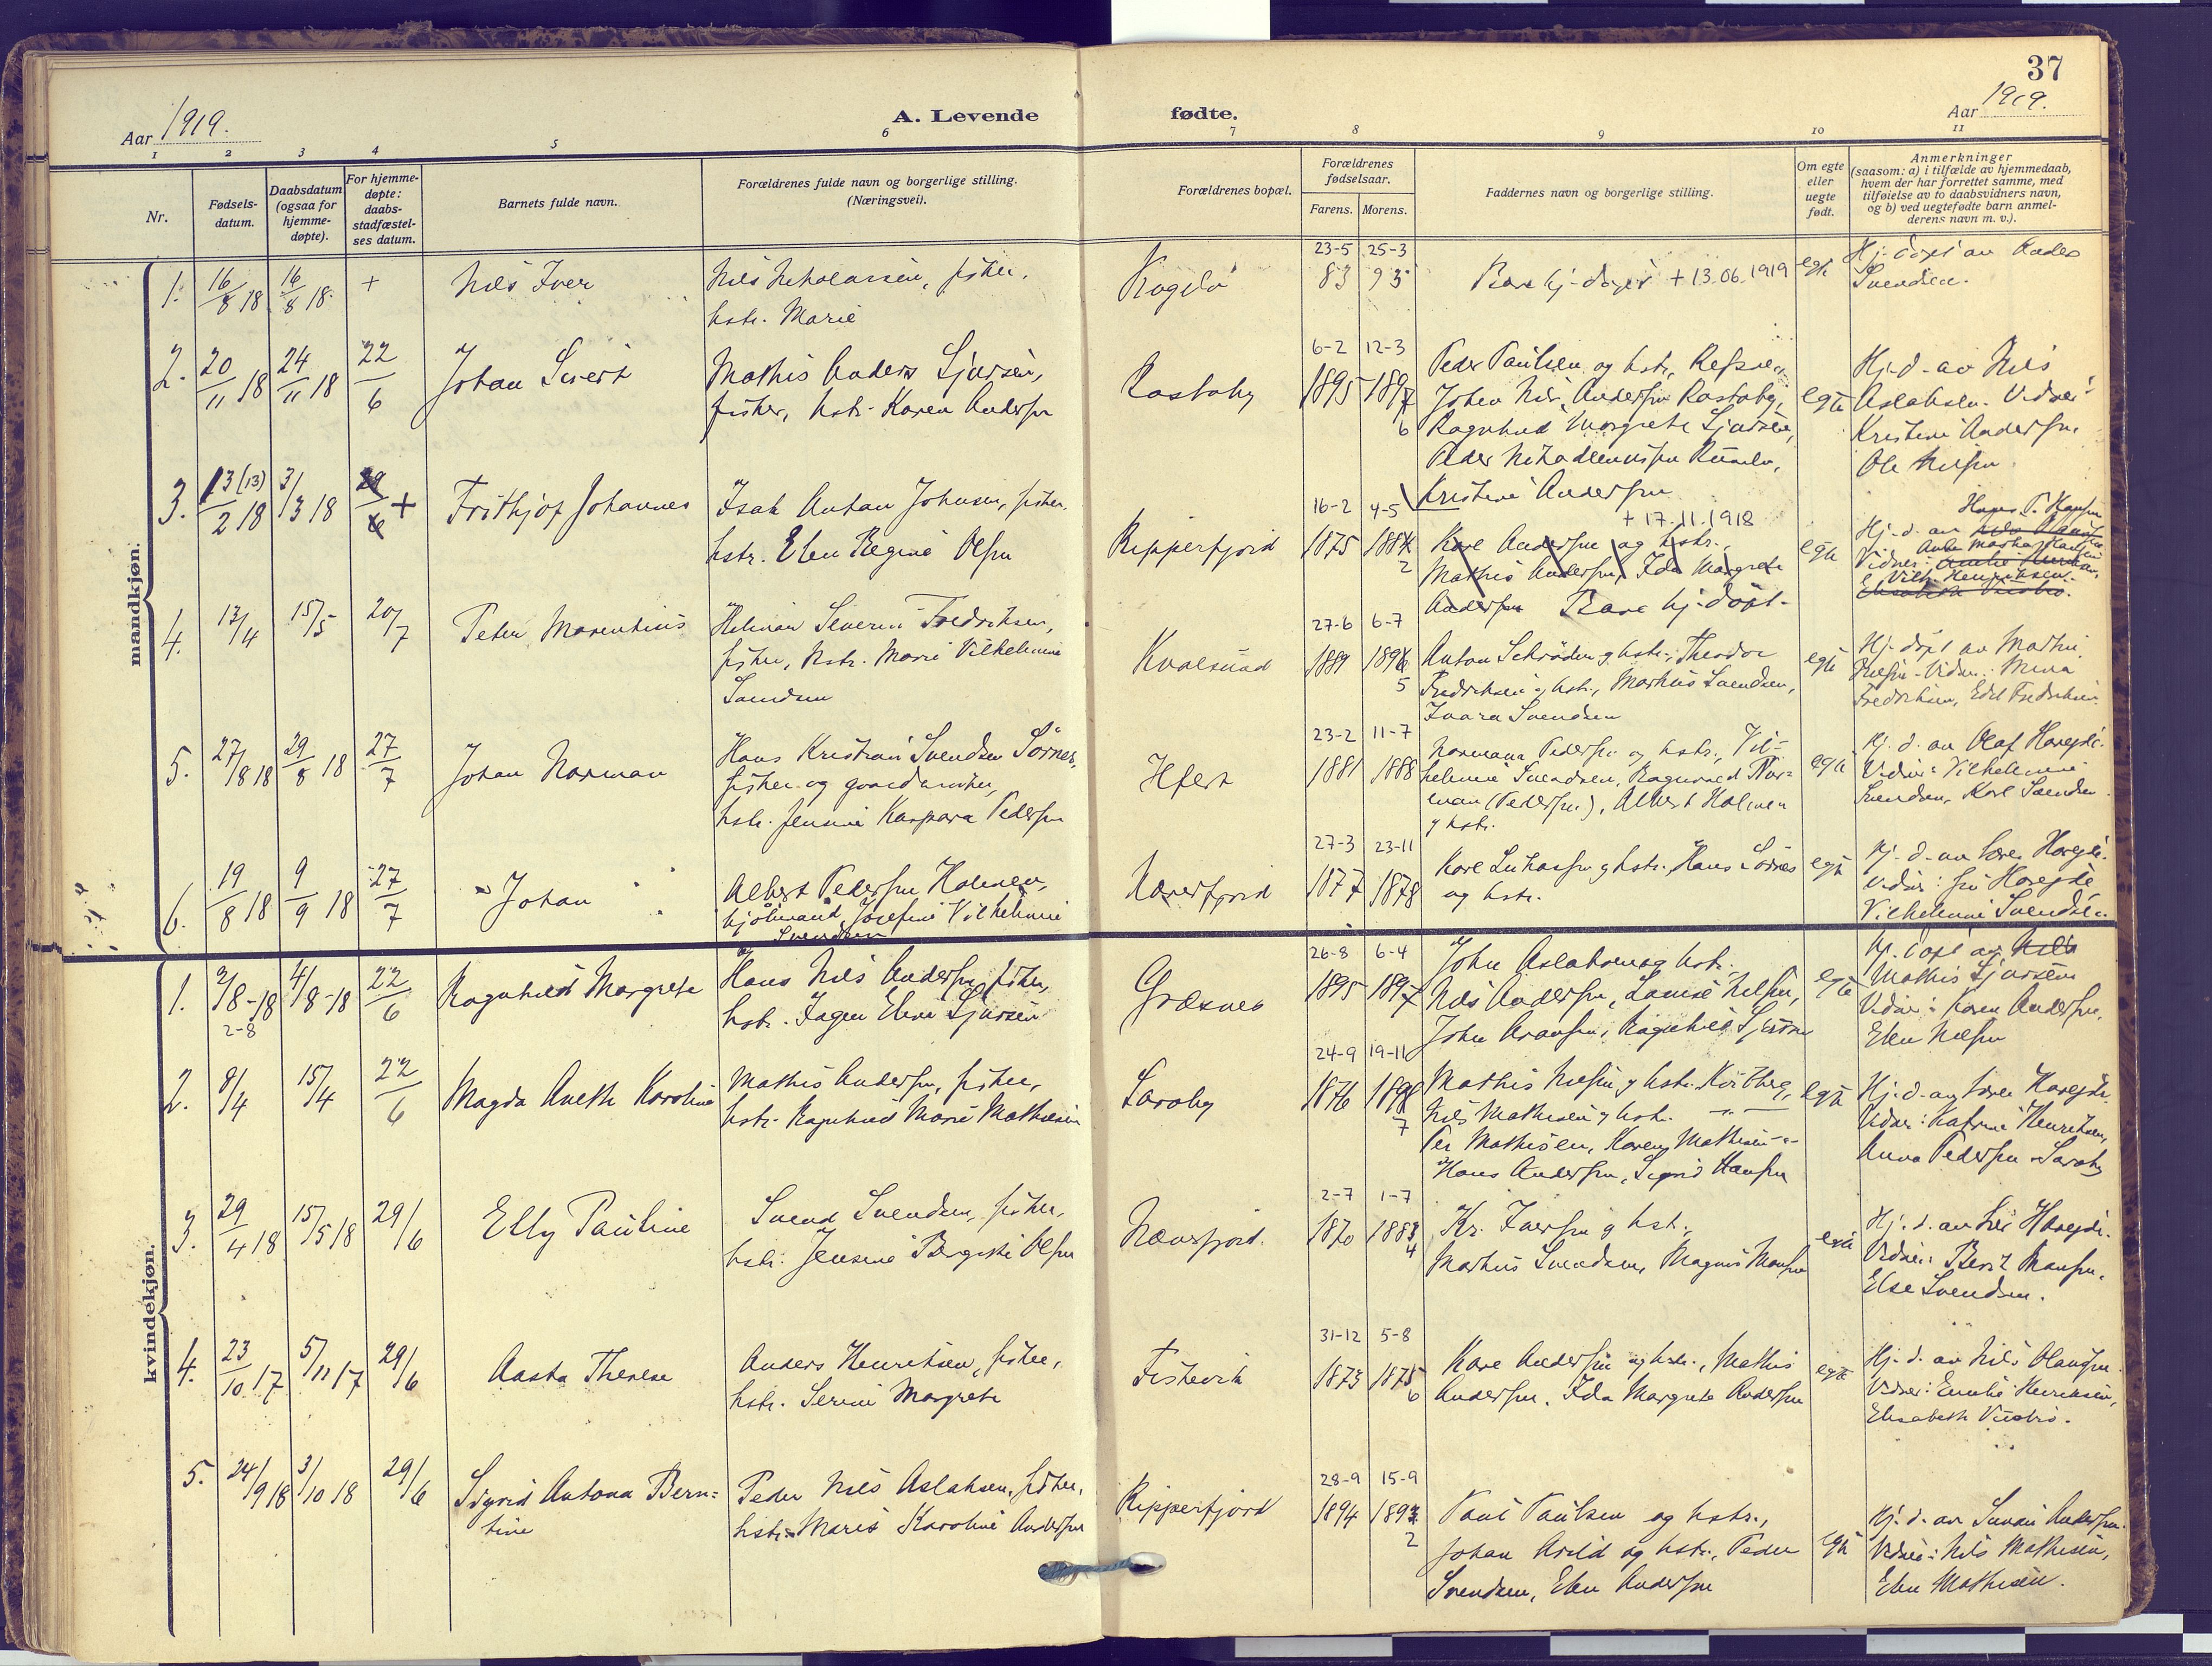 37
Aar 1919.
A. Levende fødte.
Aar 1919.
1 2 3 4 5 6 7 8 9 10 11
Nr.
Fødsels-
datum.
Daabsdatum
(ogsaa for
hjemme-
døpte).
For hjemme-
døpte:
daabs-
stadfæstel-
ses datum.
Barnets fulde navn.
Forældrenes fulde navn og borgerlige stilling.
(Næringsvei).
Forældrenes bopæl.
Forældrenes
fødselsaar.
Farens. Morens.
Faddernes navn og borgerlige stilling.
Om egte
eller
uegte
født.
Anmerkninger
(saasom: a) i tilfælde av hjemmedaab,
hvem der har forrettet samme, med
tilføielse av to daabsvidners navn,
og b) ved uegtefødte barn anmel-
derens navn m. v.).
mandkjøn.
1. 16/8 18 16/8 18. + Nils Iver
Nils Nikolaissen, fisker,
hstr. Marie
23-5 25-3
83 93
Bare hj-døpt + 13.06.1919 egte
Hj-døpt av
Svendsen.
2. 20/11 18 24/11 18 22/6 Johan Sivert
Mathis Anders Sjursen,
fisker, hstr. Karen Andersen
Rastaby
6-2 12-3
1895 1897
6
Peder Paulsen og hstr.,
Johan Nils Andersen Rastaby,
Ragnhild Margrete Sjursen,
Kristine Andersen
egte
Hj-d. av Nils
Aslaksen. Vidner:
Kristine Andersen
Ole Nilsen.
3. 13 (13)/2 18 3/3 18 29/6 + Frithjof Johannes
Isak Antan Johnsen, fisker,
hstr. Elen Regine Olsen
Ripperfjord
16-2 4-5
1875 1884
2
+ 17.11.1918
Kare Andersen og hstr.,
Mathis Andersen, Ida Margrete
Andersen Bare hj-døpt-
egte
Hans P. Hansen
Hj-d. av
Vidner:
Vilh. Henriksen.
Elisabeth
4. 13/4 15/5 20/7 Peter Marentius
Hilmar Severin Fredriksen,
fisker, hstr. Marie Vilhelmine
Svendsen
Kvalsund
27-6 6-7
1889 1896
5
Anton Schrøder og hstr., Theodor
Fredriksen og hstr., Markus Svendsen,
Ivara Svendsen
egte
Hj-døpt av
Vidner: Mina
Fredriksen, Edel Fredriksen
5. 27/8 18 29/8 18 27/7 Johan Norman
Hans Kristian Svendsen Sørnes,
fisker og gaardbruker,
hstr. Jensine Kaspara Pedersen
23-2 11-7
1881 1888
Normann Pedersen og hstr., Vil-
helmine Svendsen, Ragnvald Nor-
man (Pedersen), Albert Holmen
og hstr.
egte
Hj. d. av Olaf
Vidner: Vilhelmine
Svendsen, Karl Svendsen.
6. 19/8 18 9/9 18 27/7 Johan
Albert Pedersen Holmen,
Josefine Vilhelmine
Svendsen
27-3 23-11
1877 1878
og hstr. Hans Sørnes
og hstr.
egte
Hj-d. av
Vidner: fru
Vilhelmine Svendsen.
kvindekjøn.
1. 2/8-18 4/8-18 22/6 Ragnhild Margrete
2-8
Hans Nils Andersen, fisker,
hstr. Inger Elene Sjursen
Græsnes
26-8 6-4
1895 1897
John Aslaksen og hstr.,
Nils Andersen, Lovise Nilsen,
John Aronsen, Ragnhild Sjursen
egte
Hj. døpt av Nils
Mathis Sjursen
Vidner: Karen Andersen,
Elen Nilsen
2. 8/4 15/4 22/6 Magda Aneth Karoline
Mathis Andersen, fisker,
hstr. Ragnhild Marie Mathisen
Saraby
24-9 19-11
1876 1898
7
Mathis Nilsen og hstr. Kvitberg,
Nils Mathisen og hstr. -"-
Per Mathisen, Karen Mathisen -"-
Hans Andersen, Sigrid Hansen
egte
Hj-d. av
Vidner: Katrine Henriksen,
Anna Pedersen Saraby
3. 29/4 18 15/5 18 29/6 Elly Pauline
Svend Svendsen, fisker,
hstr. Jensine Olsen
2-7 1-7
1870 1883
4
Kr. Iversen og hstr.,
Markus Svendsen, Magnus Hansen
egte
Hj. d. av
Vidner: Berit Hansen,
Else Svendsen.
4. 23/10 17 5/11 17 29/6 Aasta Therese
Anders Henriksen, fisker,
hstr. Serine Margrete
Fiskevik
31-12 5-8
1873 1875
6
Kare Andersen og hstr., Mathis
Andersen, Ida Margrete Andersen
egte
Hj. d. av Nils
Vidner: Emilie Henriksen,
Elisabeth
5. 24/9 18 3/10 18 29/6 Sigrid Antona Bern-
tine
Peder Nils Aslaksen, fisker,
hstr. Marie Karoline Andersen
Ripperfjord
28-9 15-9
1894 1893
2
Paul Paulsen og hstr.,
Johan Arild og hstr., Peder
Svendsen, Elen Andersen
egte
Hj. d. av Andersen.
Vidner: Nils Mathisen,
Elen Mathisen.